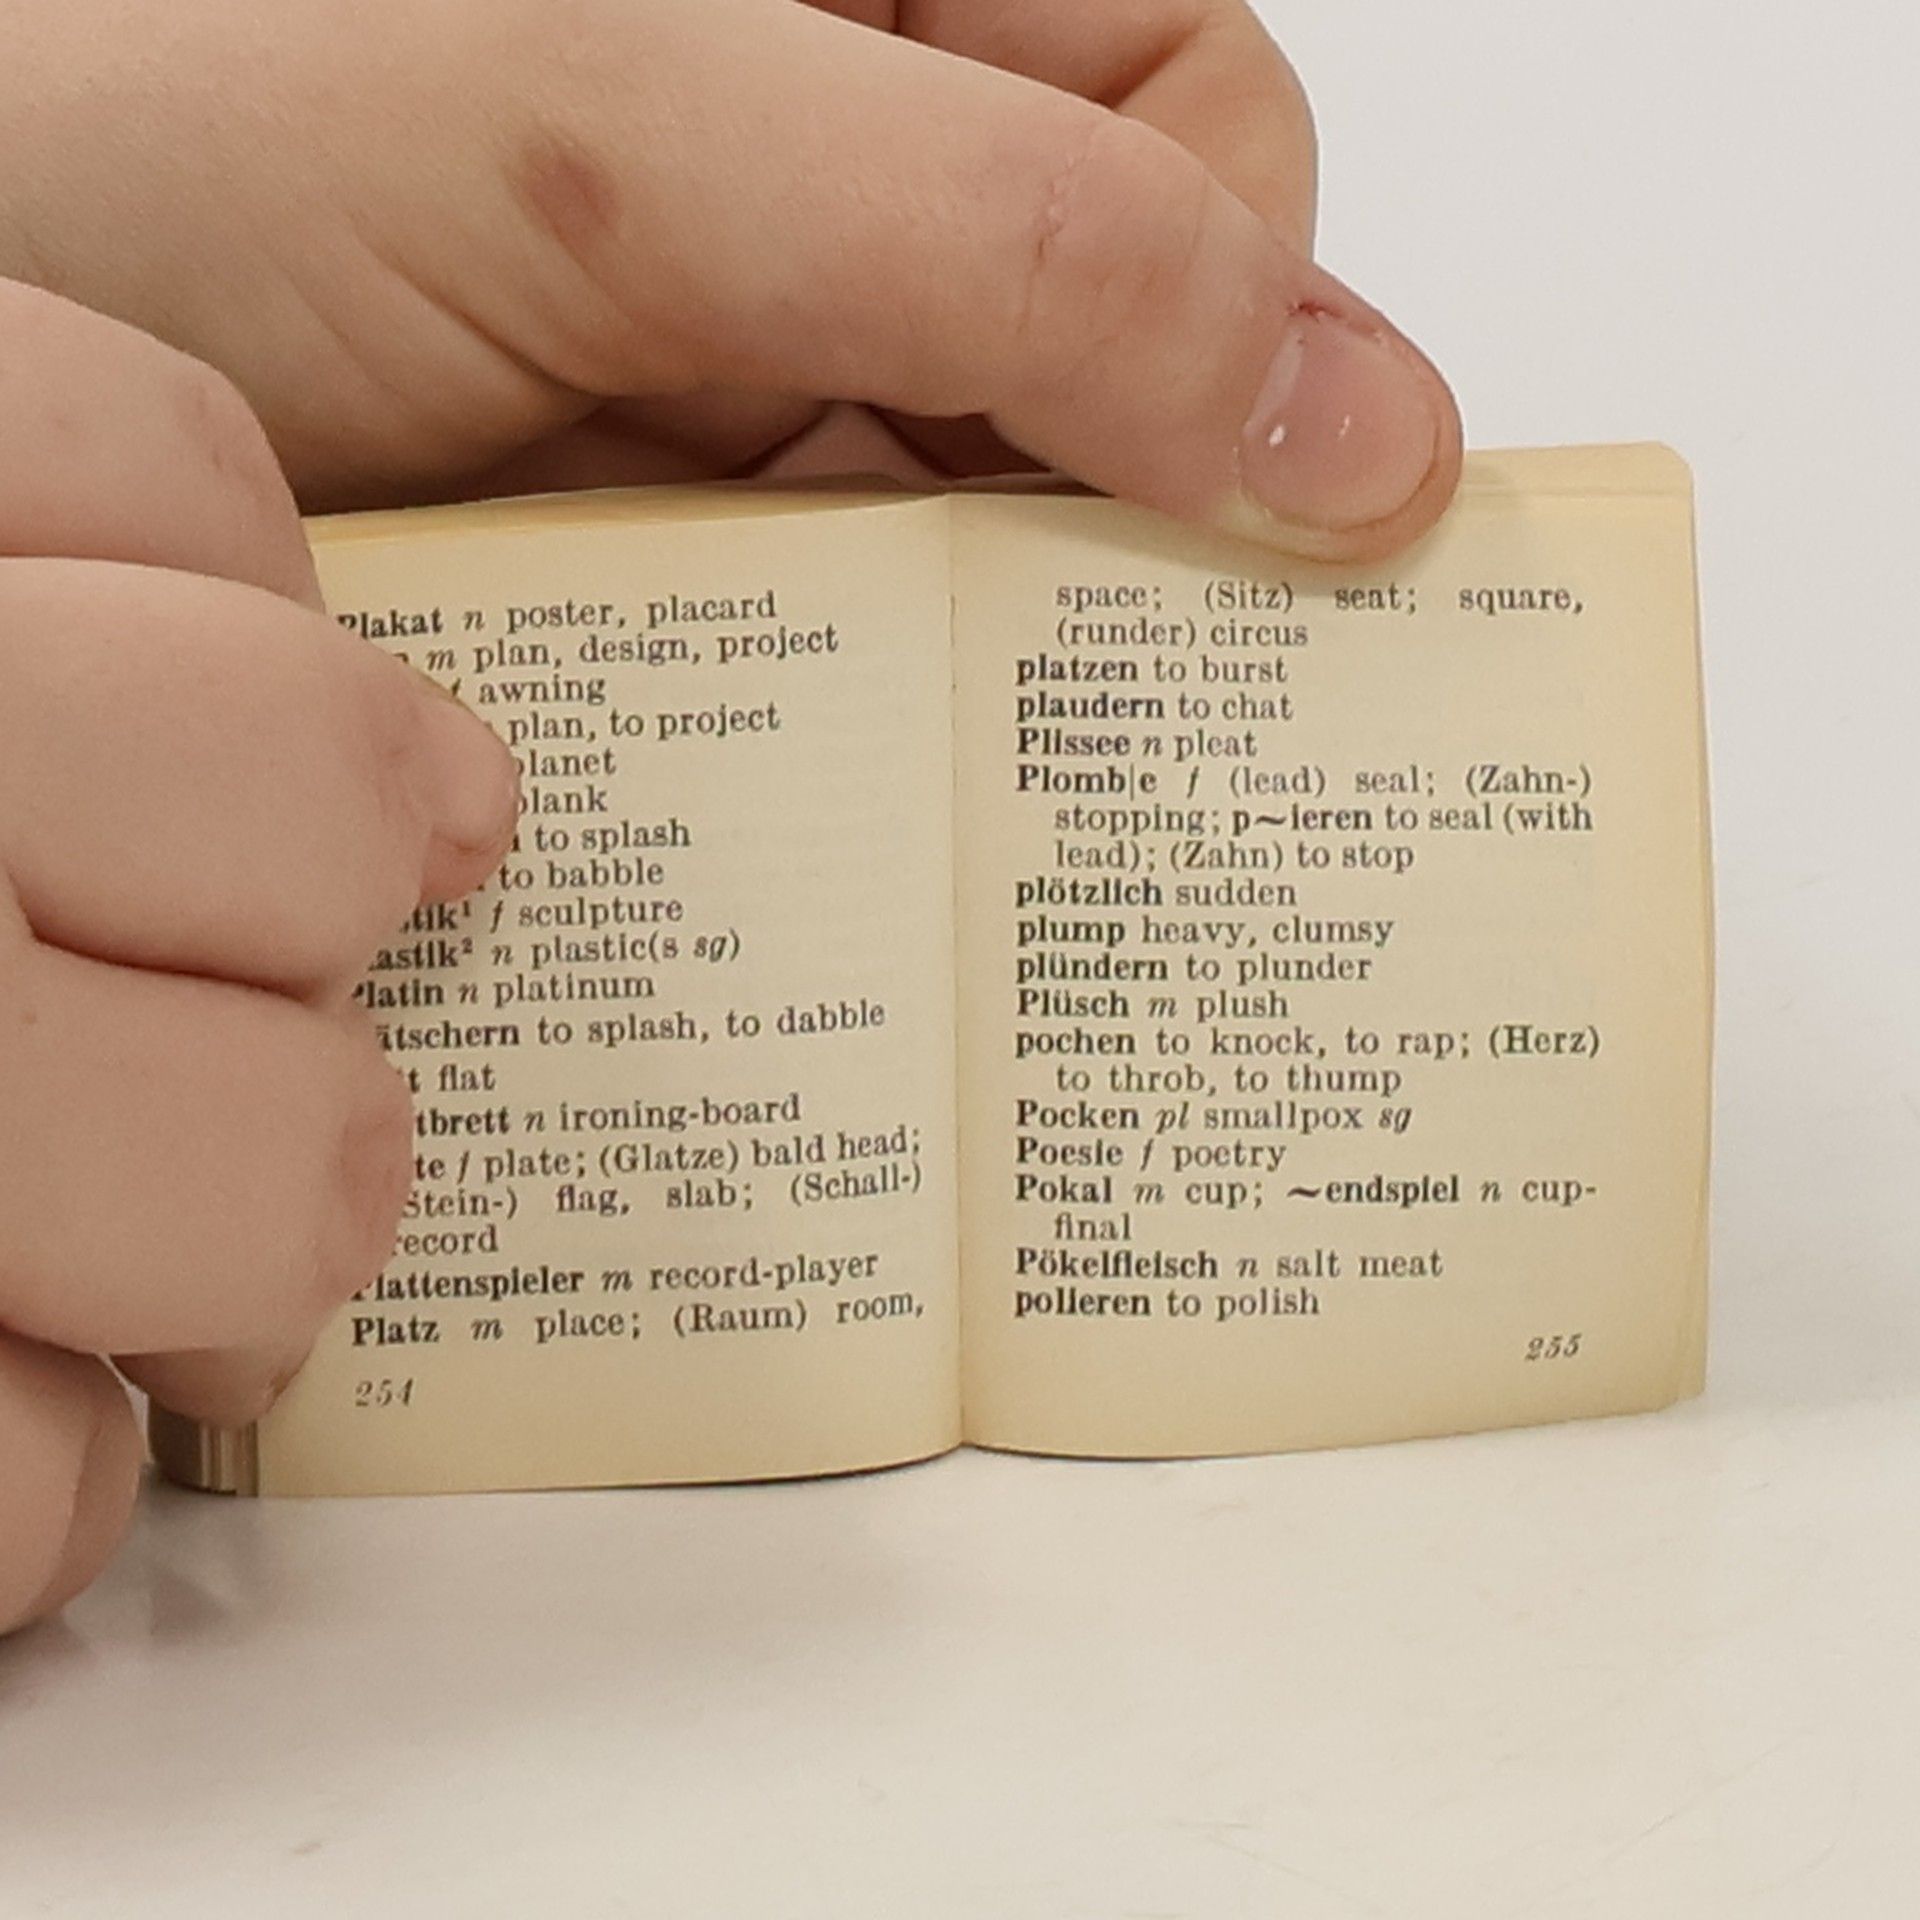 Plakat n poster, placard
m plan, design, project
f awning
plan, to project
planet
plank
to splash
to babble
f sculpture
n plastic(s sg)
Platin n platinum
to splash, to dabble
flat
n ironing-board
f plate; (Glatze) bald head;
(Stein-) flag, slab; (Schall-)
record
Plattenspieler m record-player
Platz m place; (Raum) room,
254
space; (Sitz) seat; square,
(runder) circus
platzen to burst
plaudern to chat
Plissee n pleat
Plomb|e f (lead) seal; (Zahn-)
stopping; p~ieren to seal (with
lead); (Zahn) to stop
plötzlich sudden
plump heavy, clumsy
plündern to plunder
Plüsch m plush
pochen to knock, to rap; (Herz)
to throb, to thump
Pocken pl smallpox sg
Poesie f poetry
Pokal m cup; ~endspiel n cup-
final
Pökelfleisch n salt meat
polieren to polish
255